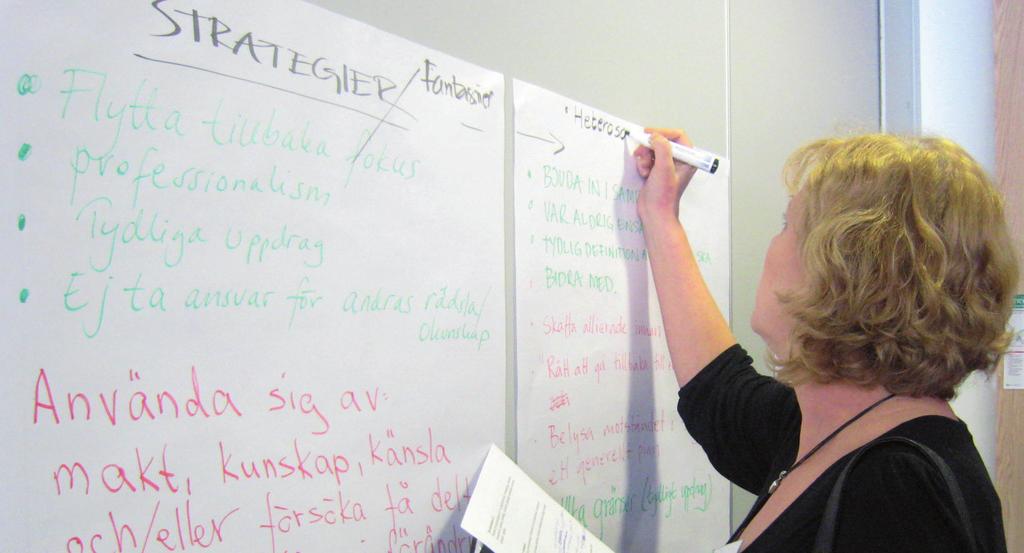 STRATEGIER / Fantasier
Flytta tillbaka fokus
professionalism
Tydliga uppdrag
Ej ta ansvar för andras rädsla/
okunskap
Använda sig av:
makt, kunskap, känsla
och/eller försöka få
• Heteroso
• BJUDA IN I
• VAR ALDRIG
• TYDLIG DEFINITION
BIDRA MED.
Skaffa allierade
Rätt att gå tillbaka till
Belysa motståndet i
ett generellt plan
gränser (tydligt uppdrag)